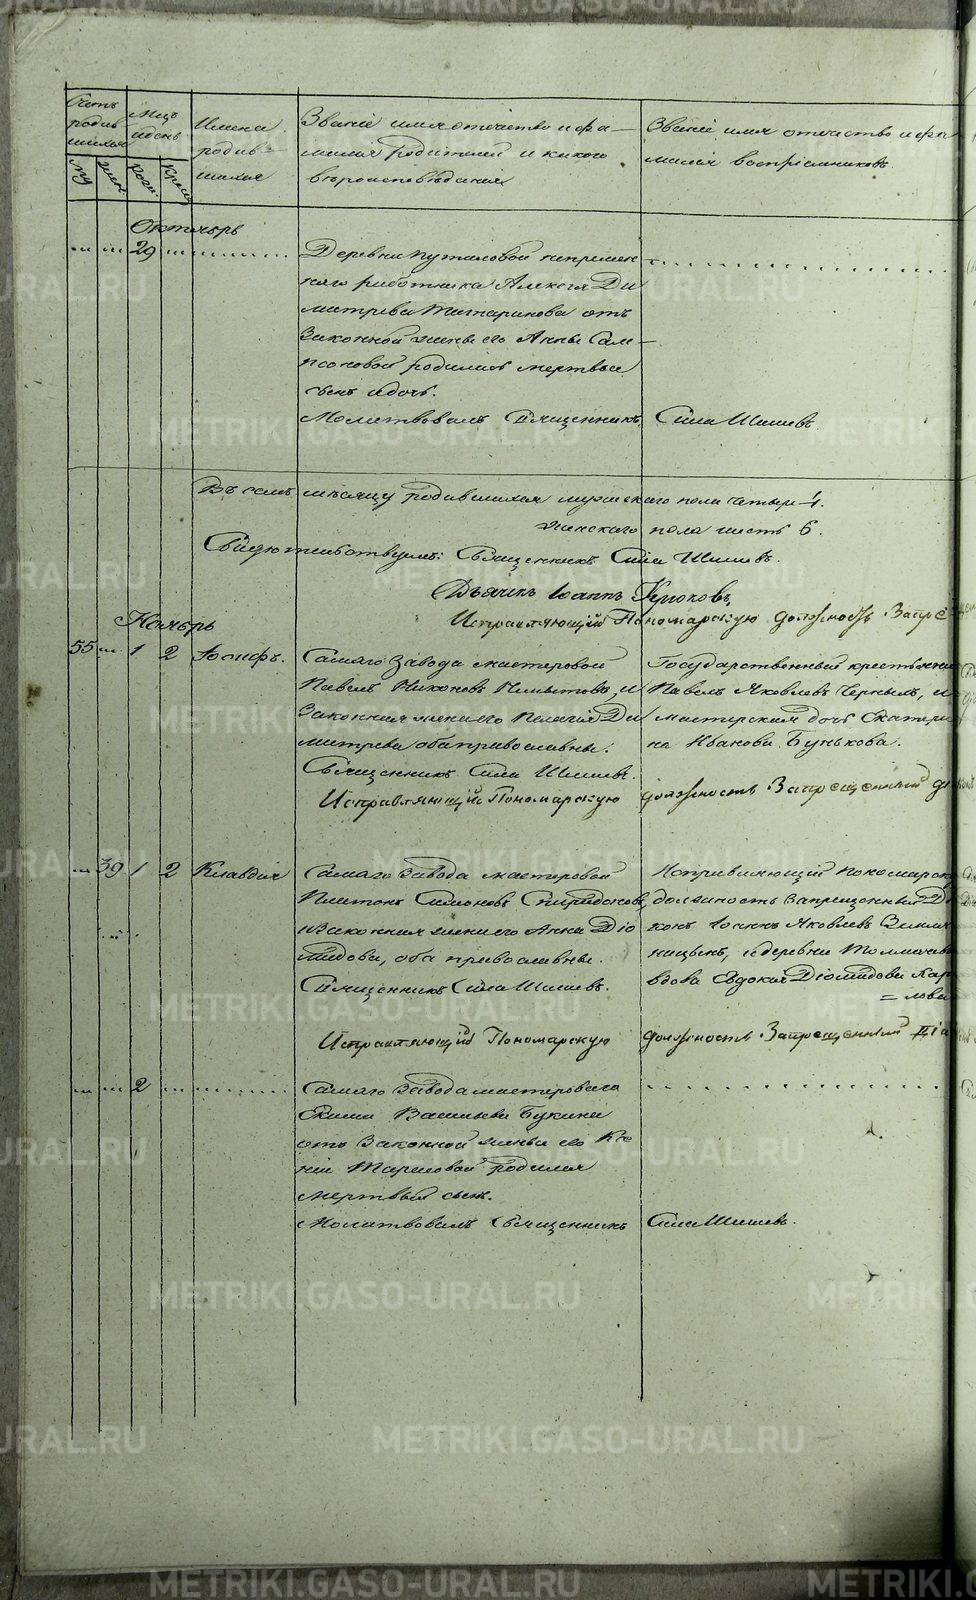 METRIKI.GASO-URAL.RU
Счетъ родив шихся
Мцъ и день
Имена родив= шихся
Званіе имя отечество и фа–
милія родителей и какого
вѣроисповѣданія
Званіе имя отечество и фа
милія воспріемниковъ
му жен рож. крещ
Октябрь
29
Деревни Путиловой непремен
наго работника Алексія Ди
митріева Татаринова отъ
законной жены его Анны Сам–
псоновой родились мертвые
сынъ и дочь.
Молитвовалъ Священникъ Сила Шишевъ.
Въ семъ мѣсяцу родившихся мужескаго пола четыре 4.
женскаго пола шесть 6.
Свидетельствуемъ: Священникъ Сила Шишевъ.
Дьячекъ Іоаннъ Крюковъ,
Исправляющій Пономарскую должность Запрѣ
Ноябрь
55 1 2 Іосифъ.
Самаго завода мастеровой
Павелъ Никоновъ и
законная жена его Пелагія Ди
митріева оба православны.
Священникъ Сила Шишевъ.
Исправляющій Пономарскую должность Запрещенный
Государственный крестьянинъ
Павелъ Яковлевъ Черныхъ, и
мастерская дочь Екатери
на Иванова Бунькова.
39 1 2 Клавдія
Самаго завода мастеровой
Платонъ Симоновъ Спиридоновъ,
и законная жена его Анна Діо
мидова, оба православны.
Священникъ Сила Шишевъ.
Исправляющій Пономарскую должность Запрещенный Діа
Исправляющій пономарск
должность запрещенный Ді
конъ Іоаннъ Яковлевъ
ницынъ, и деревни Толмачев
вдова Евдокія Діомидова Пар
= лова
2
Самаго завода мастероваго
Васильева Букина
отъ законной жены его Ксе
ніи Тарасовой родился
мертвый сынъ.
Молитвовалъ Священникъ Сила Шишевъ.